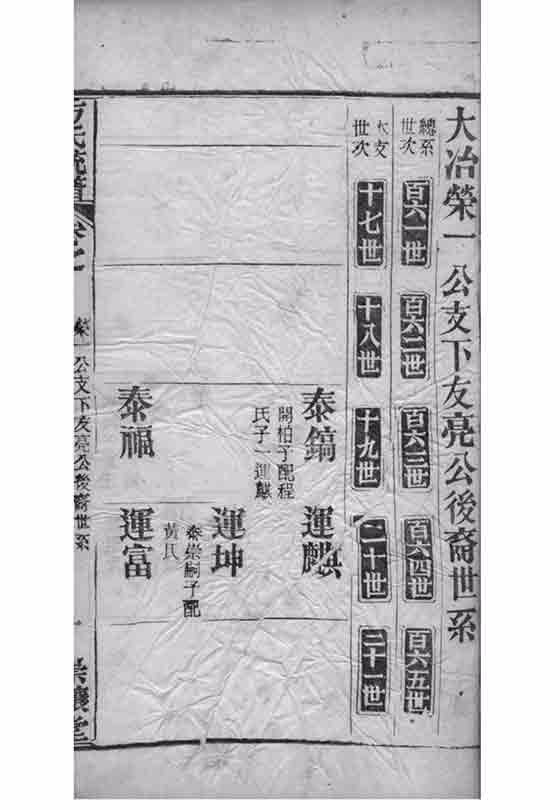 大冶榮一公支下友亮公後裔世系
總系世次
百六一世
百六二世
百六三世
百六四世
百六五世
大支世次
十七世
十八世
十九世
二十世
二十一世
泰鎬
開柏子配程
氏子一運麒
運麒
運坤
泰崇嗣子配
黃氏
泰福
運富
公支下友亮公後裔世系